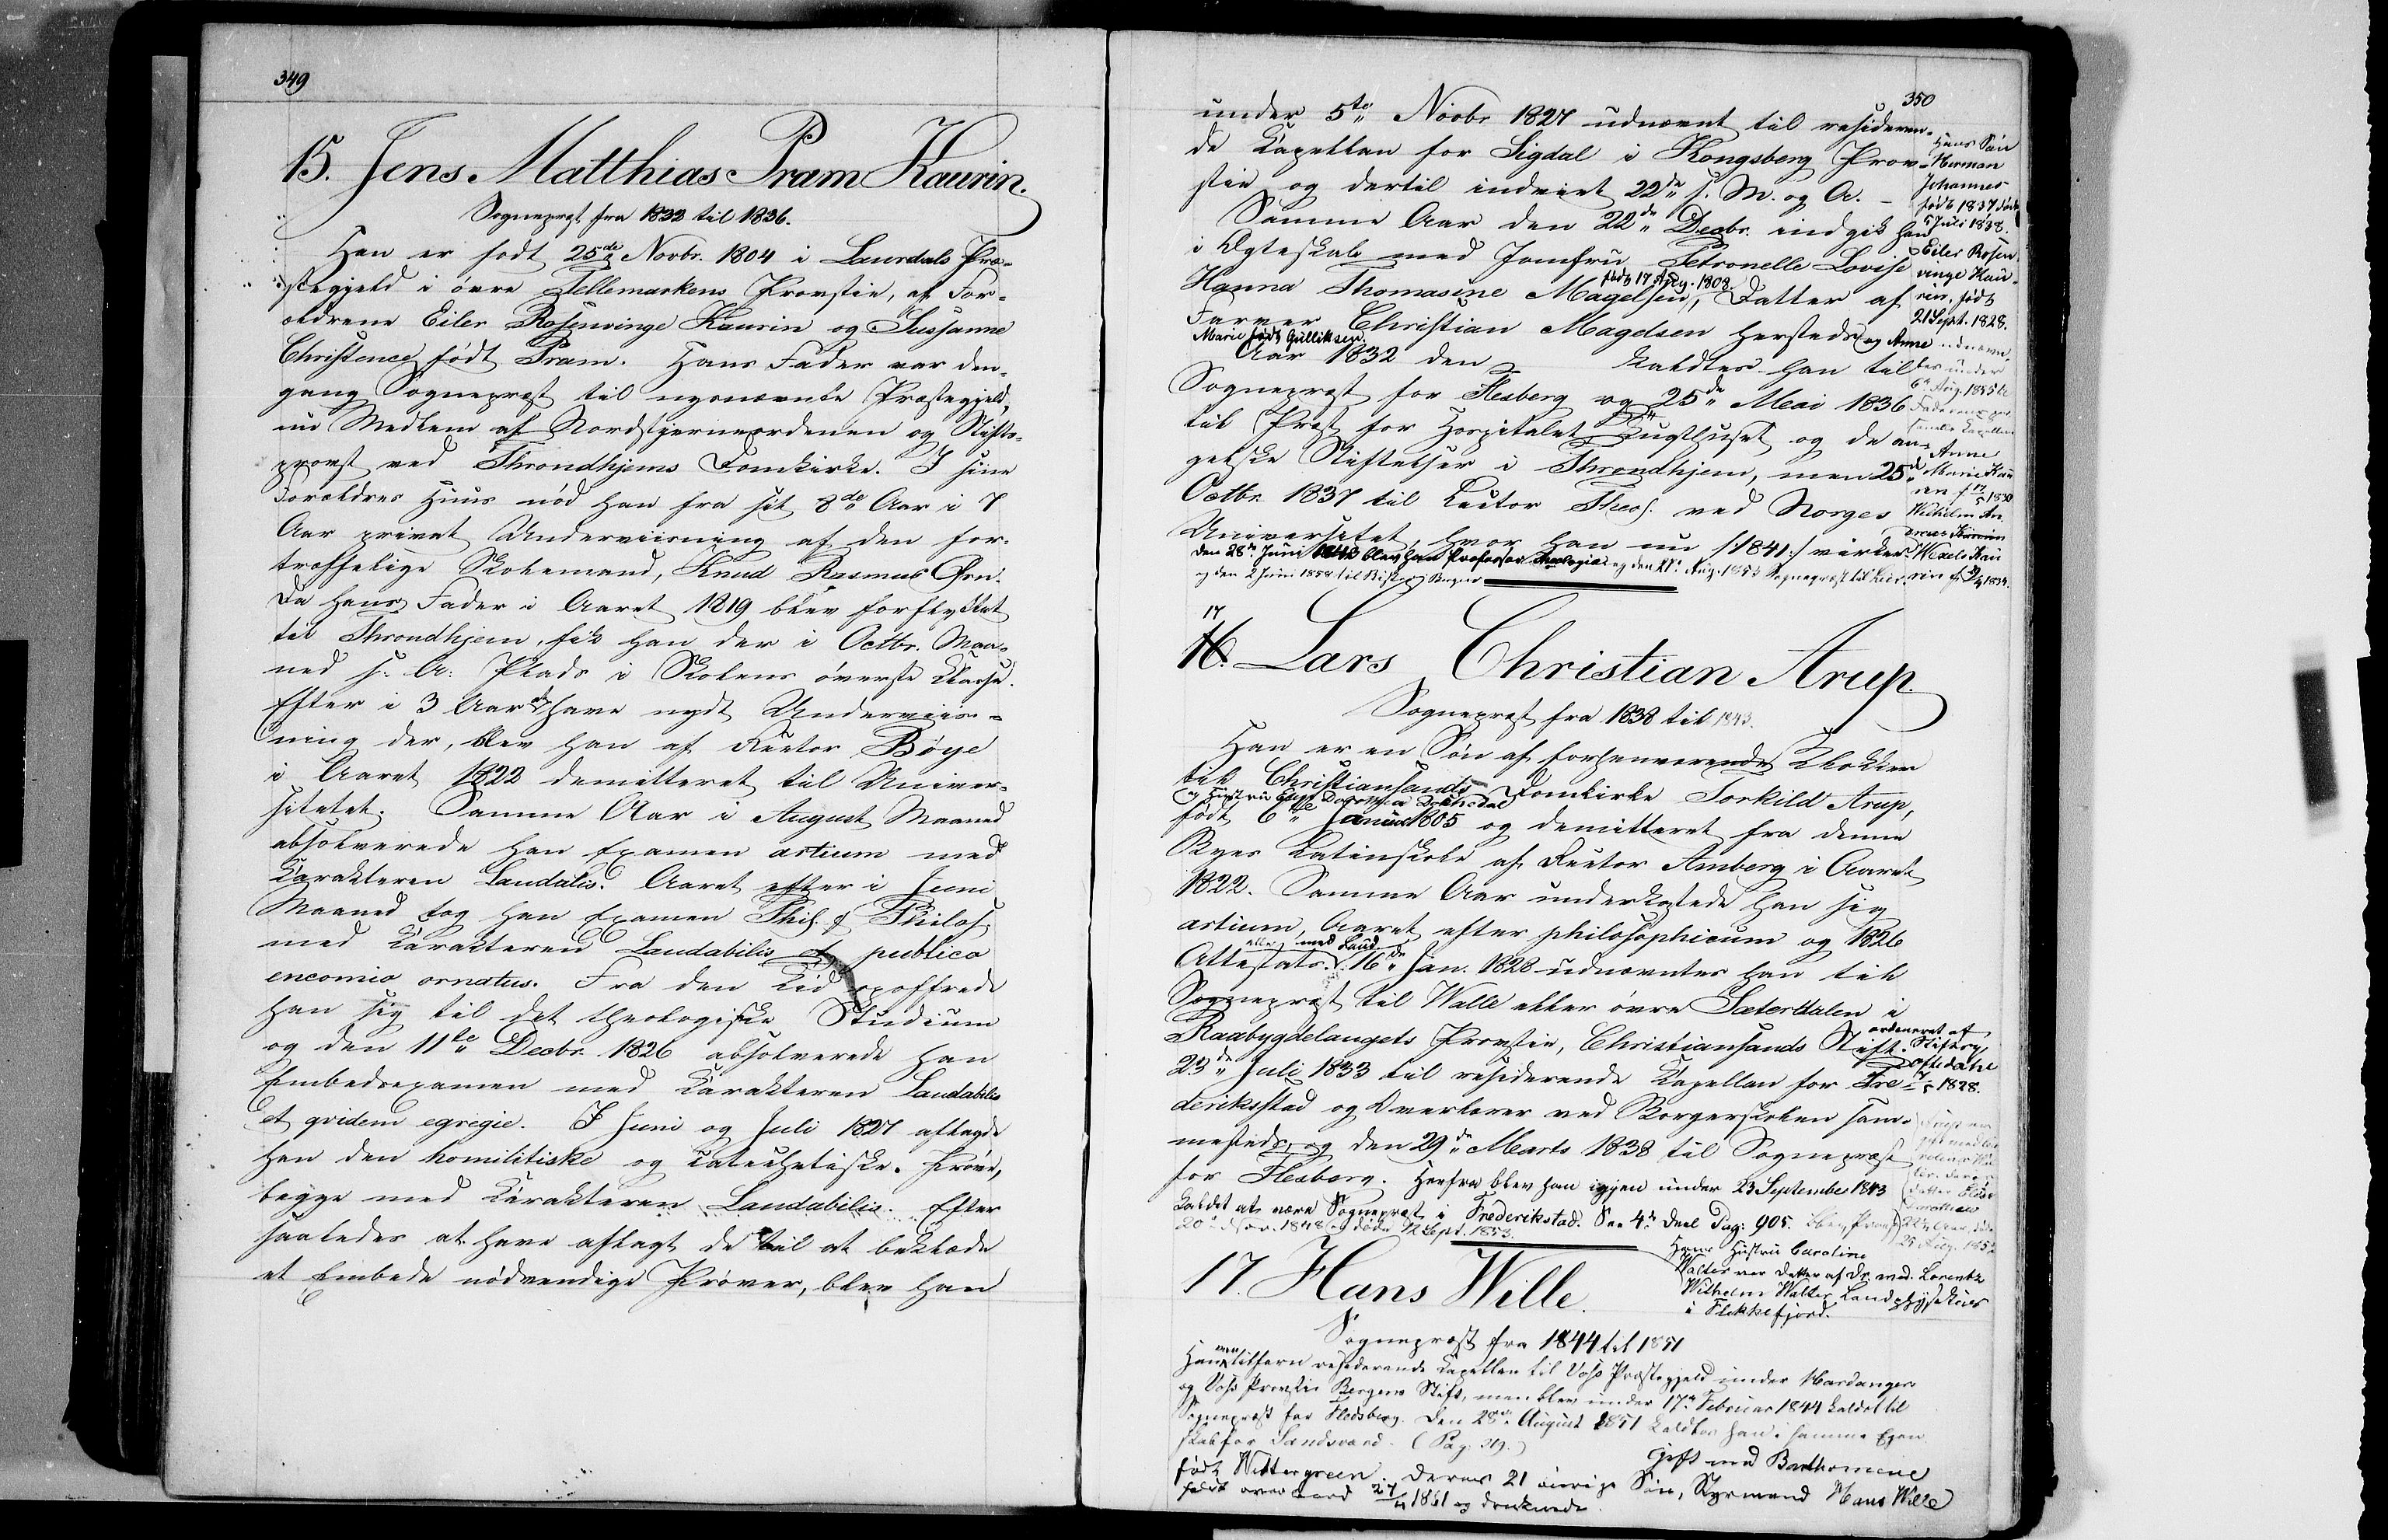 349
15. Jens Matthias Pram Kaurin.
Sognepræst fra 1832 til 1836.
Han er født 25de Novbr. 1804 i Laurdals Præ-
stegjeld i övre Tellemarkens Provstie, af For-
ældrene Eiler Rosenvinge Kaurin og Susanne
Christence født Pram. Hans Fader var den-
gang Sognepræst til nysnævnte Præstegjeld,
nu Medlem af Nordstjerneordenen og Stifts-
provst ved Throndhjems Domkirke. I sine
Forældres Huus nöd han fra sit 8de Aar i 7
Aar privat Underviisning af den for-
træffelige Skolemand, Knud Rasmus Ørn.
Da hans Fader i Aaret 1819 blev forflyttet
til Throndhjem, fik han der i Octbr. Maa-
ned s. A. Plads i Skolens överste Klasse.
Efter i 3 Aar at have nydt Underviis-
ning der, blev han af Rector Böye
i Aaret 1822 demitteret til Univer-
sitetet. Samme Aar i August Maaned
absolverede han Examen artium med
Karakteren Laudabilis. Aaret efter i Juni
Maaned tog han Examen Phil. & Philos.
med Karakteren Laudabilis et publico
encomio ornatus. Fra den Tid opoffrede
han sig til det theologiske Studium
og den 11te Decbr. 1826 absolverede han
Embedsexamen med Karakteren Laudabilis
et qvidem egregie. I Juni og Juli 1827 aflagde
han den homilitiske og katechetiske Pröve,
begge med Karakteren Laudabilis. Efter
saaledes at have aflagt de til at beklæde
et Embede nödvendige Pröver, blev han
350
under 5te Novbr 1827 udnævnt til resideren-
de Kapellan for Sigdal i Kongsberg Prov-
stie og dertil indviet 22de s. M. og A. -
Samme Aar den 22de Decbr. indgik han
i Ægteskab med Jomfru Petronelle Lovise
født 17 Aug. 1808
Hanna Thomasine Magelsen, Datter af
Farver Christian Magelsen hersteds og Anne
Marie født Gulliksen.
Aar 1832 den kaldtes han til
Sognepræst for Flesberg og 25de Mai 1836
til Præst for Hospitalet, Tugthuset og de an-
gelske Stiftelser i Throndhjem, men 25de
Octbr. 1837 til Lector Theol. ved Norges
Universitet, hvor han nu /:1841:/ virker.
den 28de Juni 1843 blev han Professor Theologiæ og den 27 Aug. 1855 Sognepræst til Lier
og den 2 Juni 1858 til Biskop i Bergen
Hans Sön
Herman
Johannes
født 1837 døde
5 Juli 1838.
Eiler Rosen-
vinge Kau-
rin, født
21 Sept. 1828.
udnævn-
tes under
6 Aug. 1855 til
Faderens per-
sonelle Kapellan
Anne
Marie Kau
rin f. 17/5 1830
Wilhelm An-
dreas
Wexels Kau
rin
17
16. Lars Christian Arup.
Sognepræst fra 1838 til 1843.
Han er en Sön af forhenværende Klokker
til Christiansands Domkirke Torkild Arup,
og Hustru Else Dorothea
født 6te Januar 1805 og demitteret fra denne
Byes Latinskole af Rector Amberg i Aaret
1822. Samme Aar underkastede han sig
artium, Aaret efter philosophicum og 1826
alle med Laud.
Attestats. 16de Jan. 1828 udnævntes han til
Sognepræst til Walle eller övre Sæterdalen i
Raabygdelaugets Provstie, Christiansands Stift.
23de Juli 1833 til residerende Kapellan for Fre-
deriksstad og Overlærer ved Borgerskolen sam-
mesteds, og den 29de Marts 1838 til Sognepræst
for Flesberg. Herfra blev han igjen under 23 September 1843
kaldet at være Sognepræst i Frederikstad. See 4de Deel Pag: 905. blev Provst
20 Nov. 1848 og døde 12 Sept. 1853.
ordineret af
Stiftspr.
Oftedahl
1828.
Arup er
gift med
Datter
Dorothea
Hans Hustru Caroline
Walter var Datter af Dr. med. Lorentz
Wilhelm Walter Landphysikus
i Flekkefjord.
17. Hans Wille.
Sognepræst fra 1844 til 1851
Han var tilforn residerende Kapellan til Voss Præstegjeld under Hardanger
og Voss Provstie Bergens Stift, men blev under 17de Februar 1844 kaldet til
Sognepræst for Flesberg. Den 28de August 1851 kaldtes han i samme Egen-
skab for Sandsværd. (Pag. 319.)
Gift med Barthomine
født Wettergreen. Deres 21 aarige Sön, Styrmand Hans Wille
faldt over Bord 27/11 1861 og druknede.